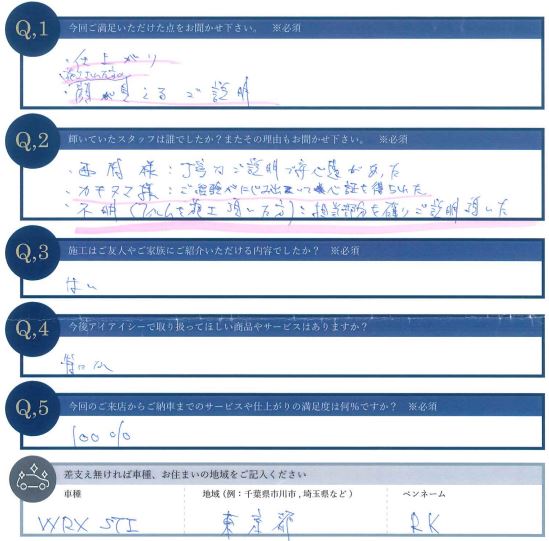 Q,1 今回ご満足いただけた点をお聞かせ下さい。 ※必須
・仕上がり
・顔が見えるご説明
Q,2 輝いていたスタッフは誰でしたか?またその理由もお聞かせ下さい。 ※必須
様:丁寧なご説明で安心感があった
・カキヌマ様:ご
・不明(フィルムを施工頂いた方):担当部分を確りご説明頂いた
Q,3 施工はご友人やご家族にご紹介いただける内容でしたか? ※必須
はい
Q,4 今後アイアイシーで取り扱ってほしい商品やサービスはありますか?
Q,5 今回のご来店からご納車までのサービスや仕上がりの満足度は何%ですか? ※必須
100%
差支え無ければ車種、お住まいの地域をご記入ください
車種 地域(例:千葉県市川市,埼玉県など) ペンネーム
WRX STI 東京都 RK